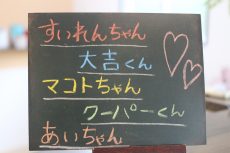 すいれんちゃん
大吉くん
マコトちゃん
クーパーくん
あいちゃん